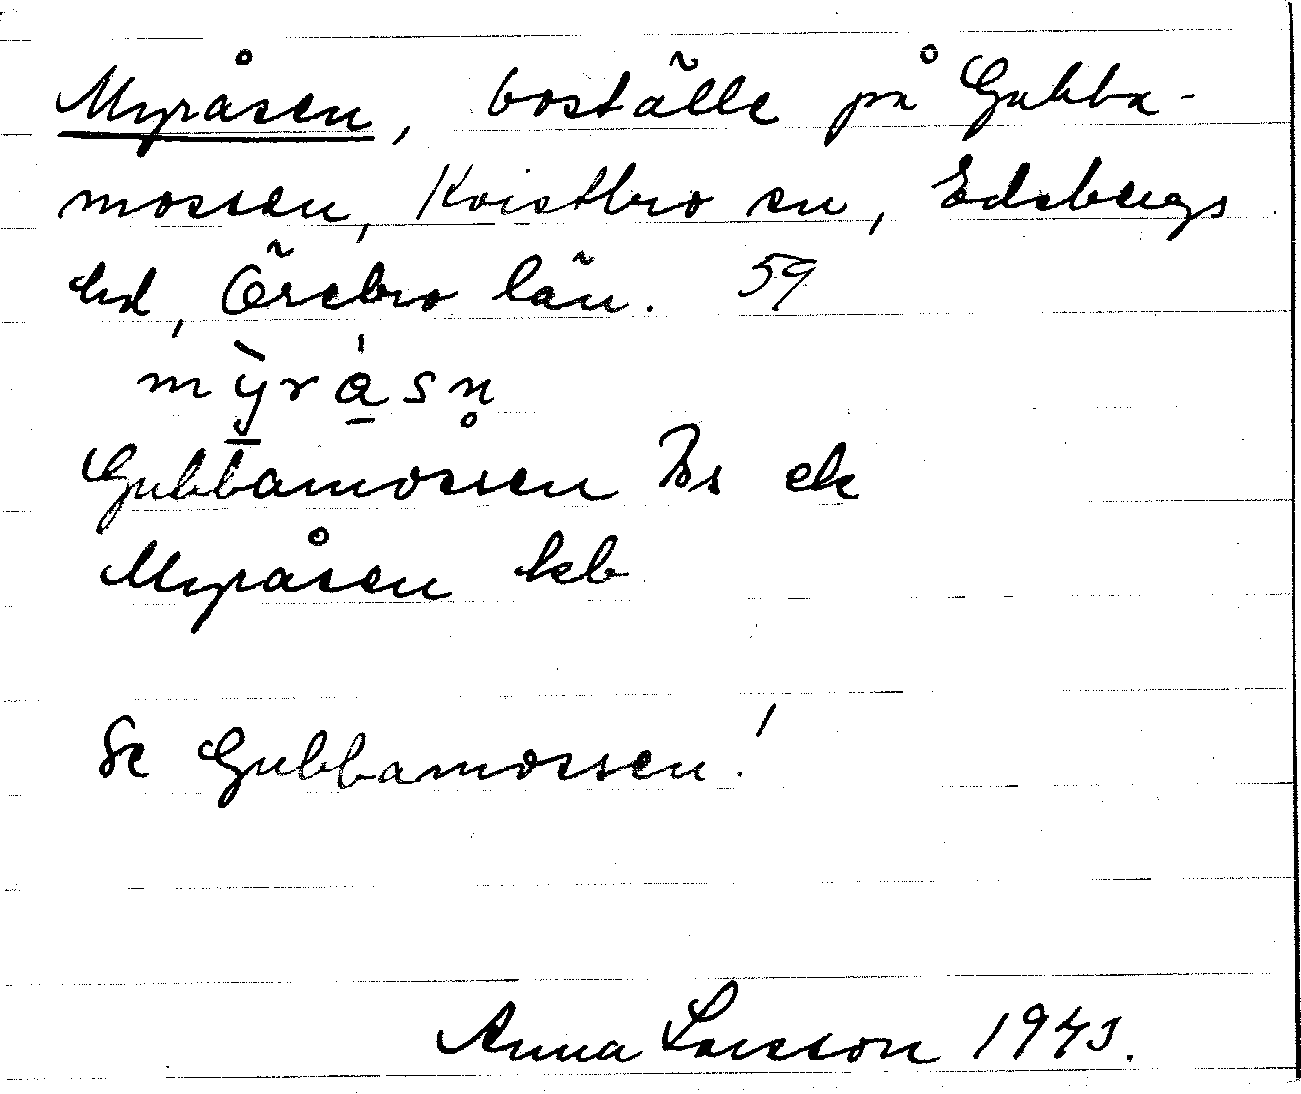 Myråsen, boställe på Gubba-
mossen, Kvistbro sn, Edsbergs
hd, Örebro län. 59
mỳråsn̥
Gubbamossen ek
Myråsen kb
Se Gubbamossen!
Anna Larsson 1943.